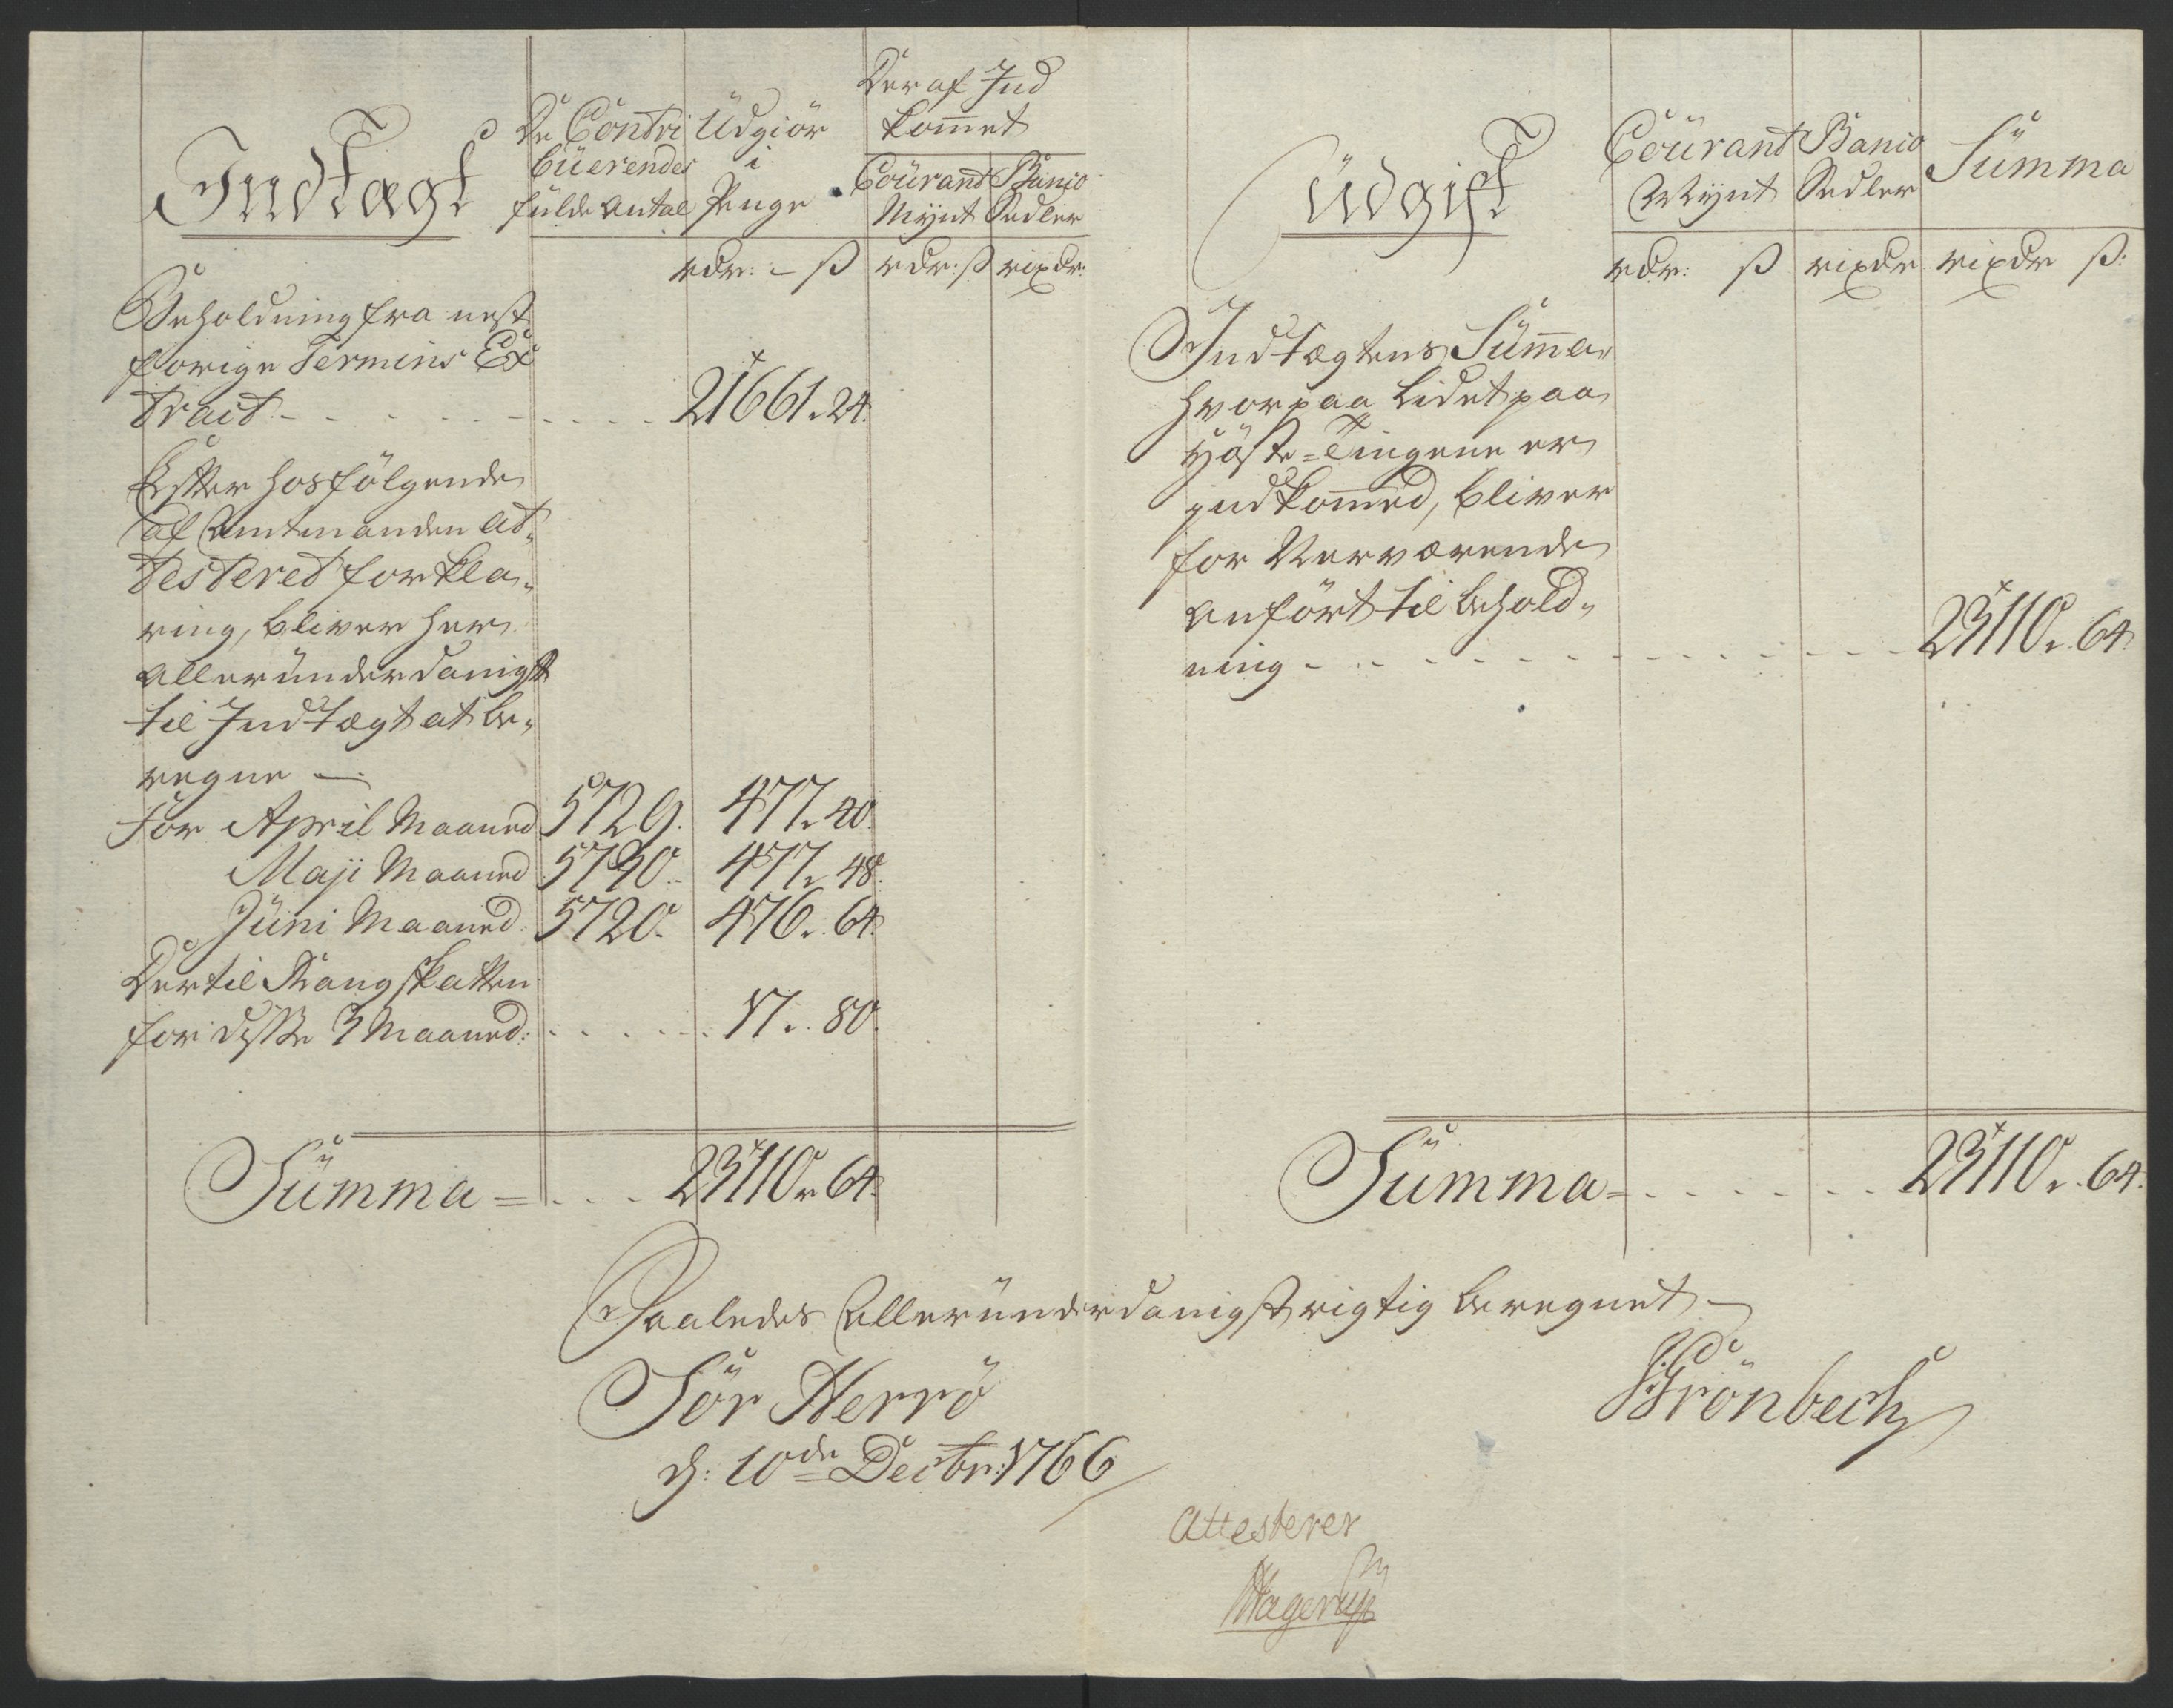 Indtægt
De Contri
büerendes
fulde Antal
Üdgiör
i
Penge
Der af Ind
kom̅et
Coürant
Mÿnt
Banco
Sedler
rdr: - ß
rdr: ß
rixdr:
Beholdning fra nest
forige Termins Ex
tract - - - - 21661. 24.
Efter hosfölgende
af Amtmanden at„
testeret forkla„
ring, bliver her
alleründerdanigst
til Indtægt at be„
regne —
for April Maaned 5729. 477. 40.
Maji Maaned 5730. 477. 48.
Jüni Maaned. 5720. 476. 64.
Dertil Rangskatten
for disse 3 Maaned: - - - 17. 80.
Sümma = - - - 23110. 64.
Üdgift
Coürant
Mÿnt
Banco
Sedler
Sümma
rdr: ß
rixdr
rixdr ß:
Indtægtens Süm̅a„
hvorpaa lidet paa
Höste-Tingene er
indkom̅ed, bliver
for Nerværende
anfört til behold„
ning - - - - 23110. 64.
Sümma = - - - 23110. 64.
Saaledes Alleründerdanigst rigtig beregnet —
Sör Herrö
d: 10de Decbr: 1766
Grönbech
Attesterer
Hagerup